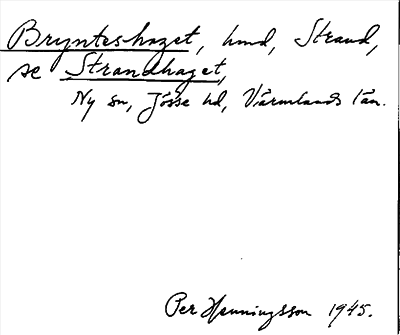 Brynteshaget, hmd, Strand,
se Strandhaget,
Ny sn, Jösse hd, Värmlands län.
Per Henningsson 1945.